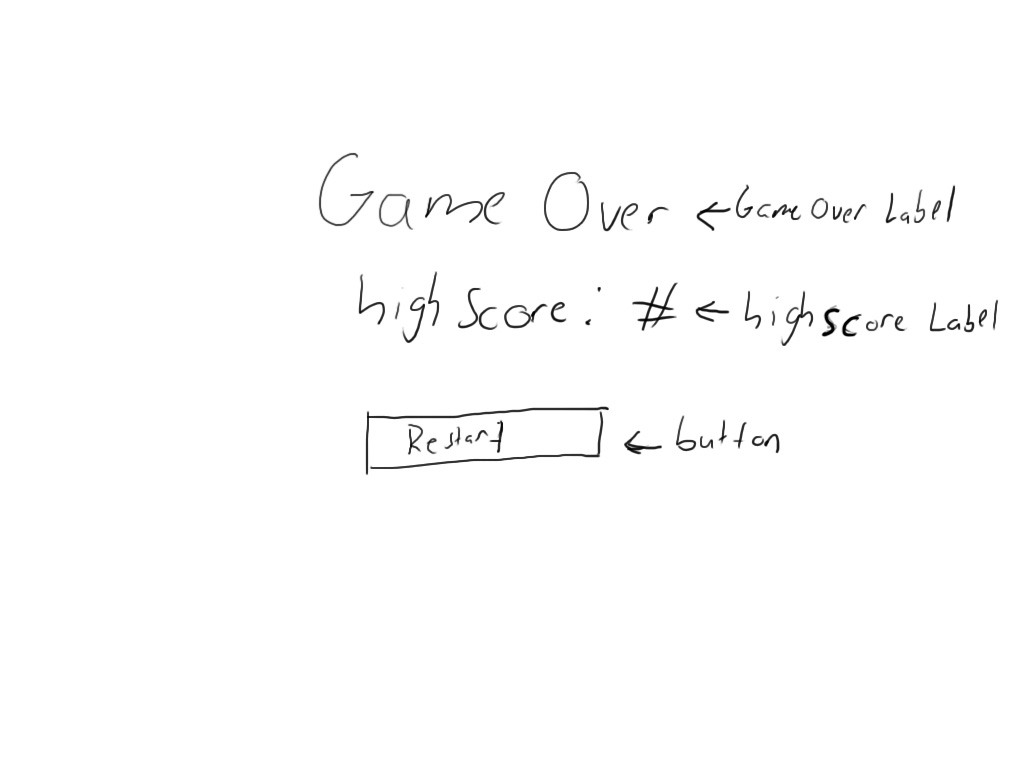 Game Over ← Game Over Label
high Score: # ← high score Label
Restart ← button